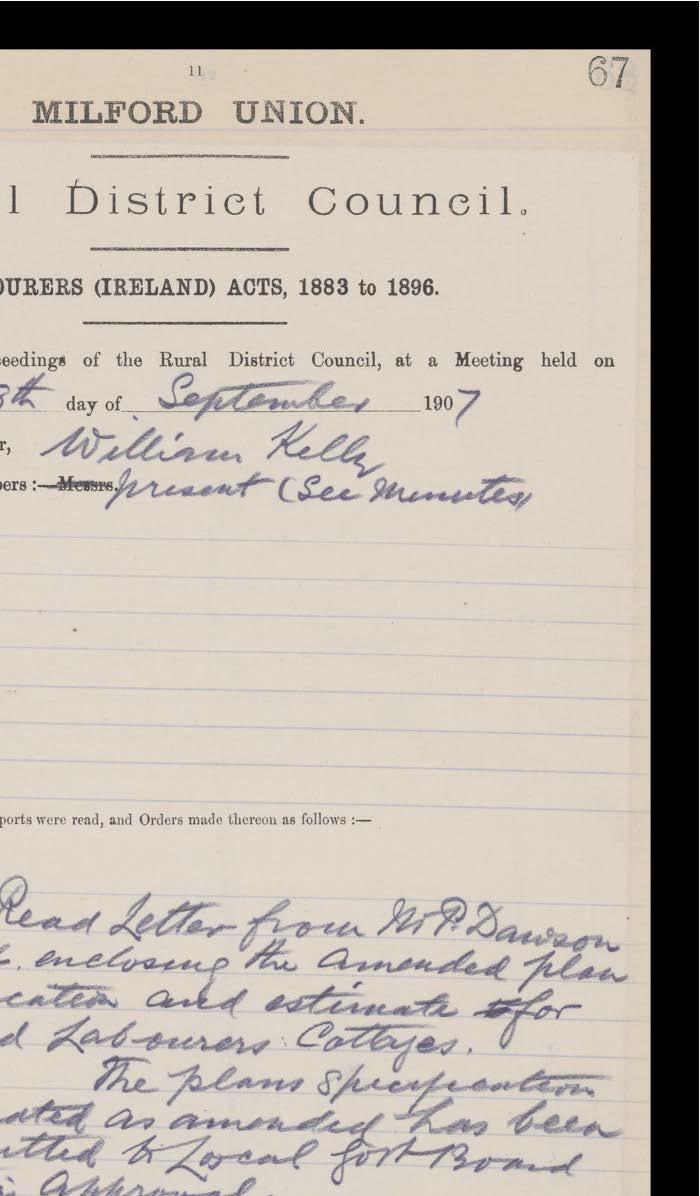 11
67
MILFORD UNION.
l District Council.
OURERS (IRELAND) ACTS, 1883 to 1896.
ceedings of the Rural District Council, at a Meeting held on
8th day of September 1907
r, William Kelly
bers :—Messrs. present (See Minutes)
ports were read, and Orders made thereon as follows :—
Read Letter from Mr P. Dawson
enclosing the amended plan
cation and estimate for
d Labourers Cottages.
The plans Specification
ated as amended has been
itted to Local Govt Board
Approval.